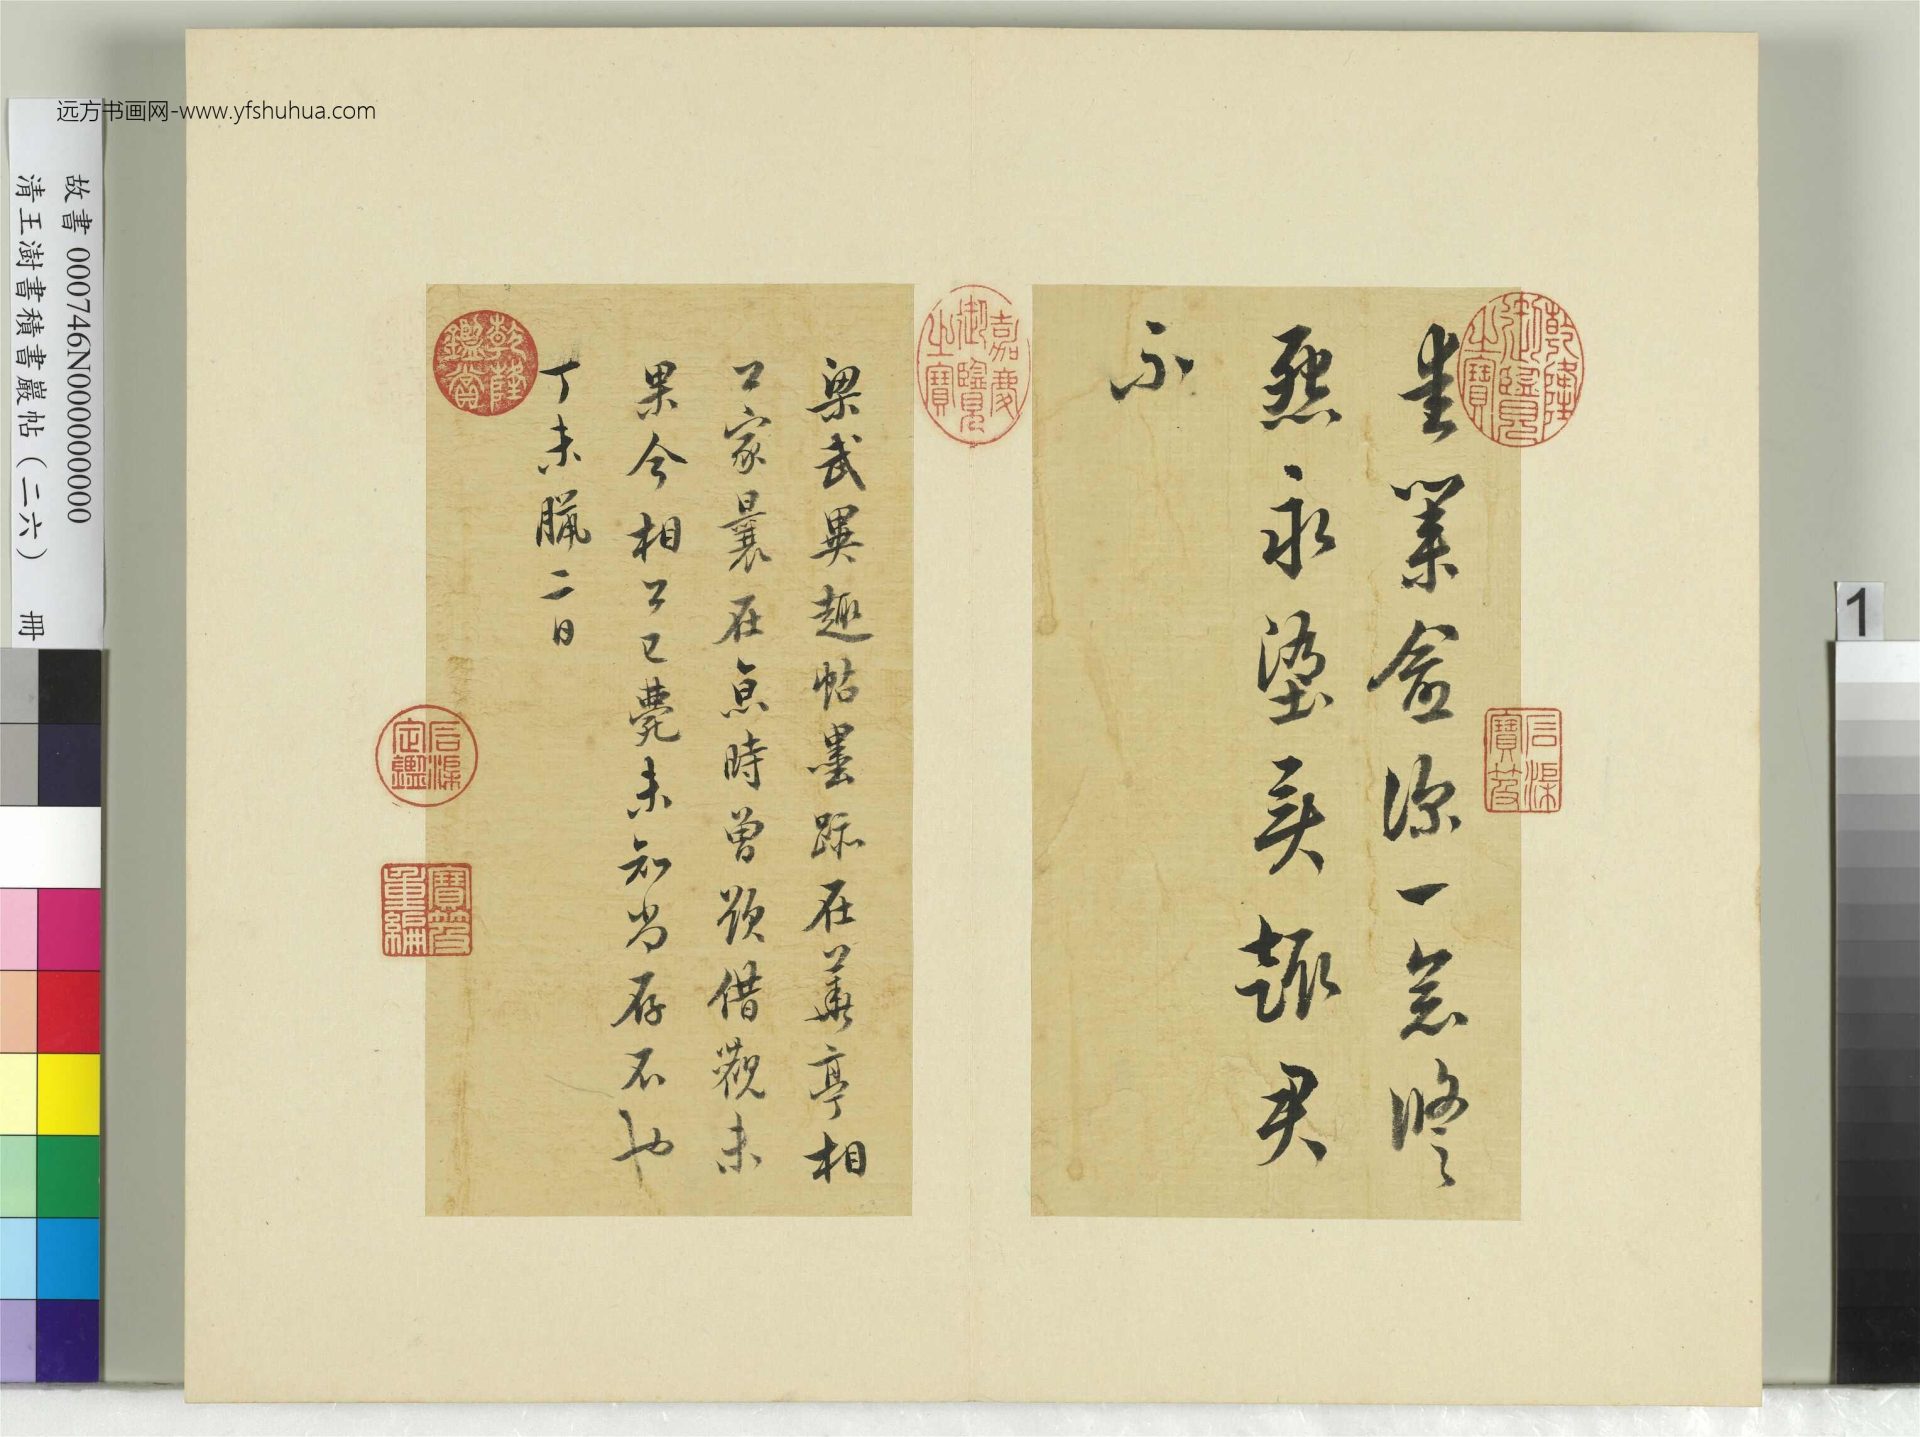 远方书画网-www.yfshuhua.com
故書 000746N000000000
清王澍書積書巖帖（二六） 冊
1
乾隆御覽之寶
石渠寶笈
愛業愈深一念脩
怨永墜異趣君
不
嘉慶御覽之寶
梁武異趣帖墨跡在華亭相
公家曩在京時曾欲借觀未
果今相公已薨未知尚存否也
丁未臘二日
乾隆鑑賞
石渠定鑑
寶笈重編